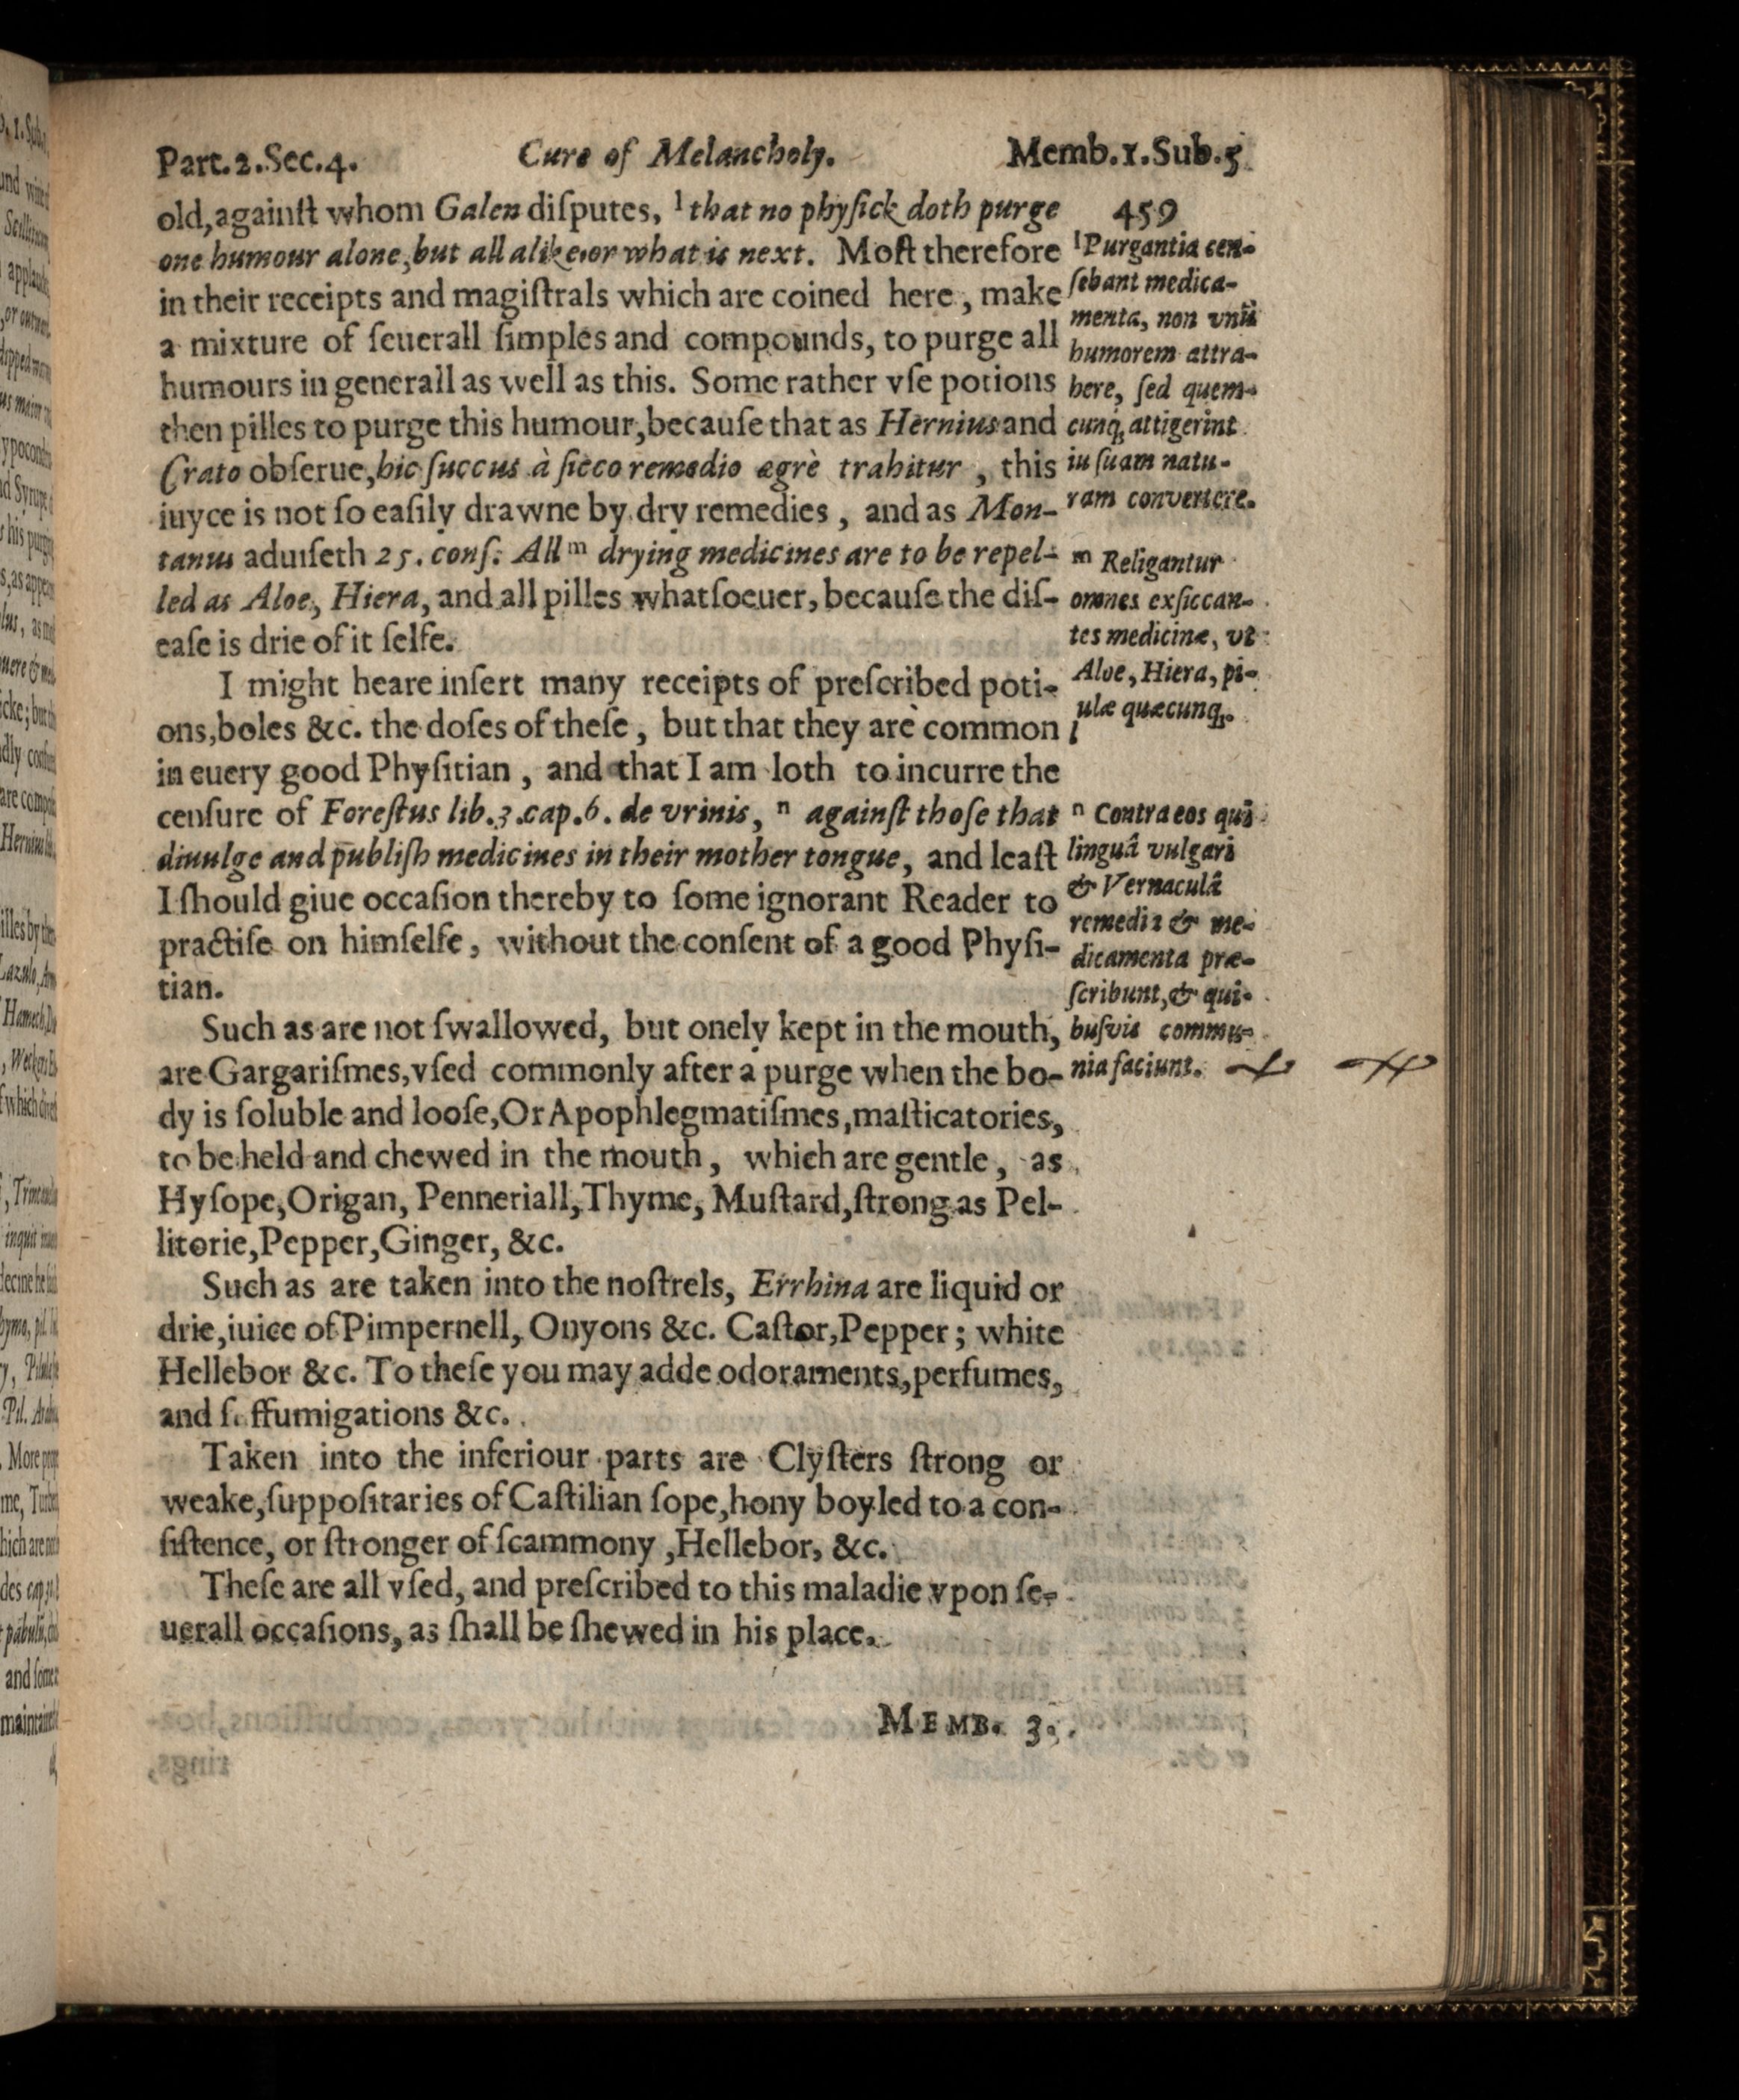 Part.2.Sec.4. Cure of Melancholy. Memb.1.Sub.5
old,againſt whom Galen diſputes, l that no phyſick doth purge
one humour alone,but all alike,or what is next. Moſt therefore
in their receipts and magiſtrals which are coined here, make
a mixture of ſeuerall ſimples and compounds, to purge all
humours in generall as well as this. Some rather vſe potions
then pilles to purge this humour,becauſe that as Hernius and
Crato obſerue,hic ſuccus à ſicco remedio ægrè trahitur , this
iuyce is not ſo eaſily drawne by dry remedies , and as Mon-
tanus aduiſeth 25. conſ. All m drying medicines are to be repel-
led as Aloe, Hiera, and all pilles whatſoeuer, becauſe the diſ-
eaſe is drie of it ſelfe.
I might heare inſert many receipts of preſcribed poti-
ons,boles &c. the doſes of theſe, but that they are common
in euery good Phyſitian , and that I am loth to incurre the
cenſure of Foreſtus lib.3.cap.6. de vrinis, n againſt thoſe that
diuulge and publiſh medicines in their mother tongue, and leaſt
I ſhould giue occaſion thereby to ſome ignorant Reader to
practiſe on himſelfe, without the conſent of a good Phyſi-
tian.
Such as are not ſwallowed, but onely kept in the mouth,
are Gargariſmes,vſed commonly after a purge when the bo-
dy is ſoluble and looſe,Or Apophlegmatiſmes,maſticatories,
to be held and chewed in the mouth, which are gentle, as
Hyſope,Origan, Penneriall,Thyme, Muſtard,ſtrong as Pel-
litorie,Pepper,Ginger, &c.
Such as are taken into the noſtrels, Errhina are liquid or
drie,iuice of Pimpernell, Onyons &c. Caſtor,Pepper; white
Hellebor &c. To theſe you may adde odoraments,perfumes,
and ſuffumigations &c.
Taken into the inferiour parts are Clyſters ſtrong or
weake,ſuppoſitaries of Caſtilian ſope,hony boyled to a con-
ſiſtence, or ſtronger of ſcammony ,Hellebor, &c.
Theſe are all vſed, and preſcribed to this maladie vpon ſe-
uerall occaſions, as ſhall be ſhewed in his place.
MEMB. 3.
459
l Purgantia cen-
ſebant medica-
menta, non vnũ
humorem attra-
here, ſed quem-
cunq; attigerint
iu ſuam natu-
ram convertere.
m Religantur
omnes exſiccan-
tes medicinæ, vt
Aloe, Hiera, pi-
ulæ quæcunq;.
l
n Contra eos qui
linguâ vulgari
& Vernaculâ
remedia & me-
dicamenta præ-
ſcribunt,& qui-
buſvis commu-
nia faciunt.